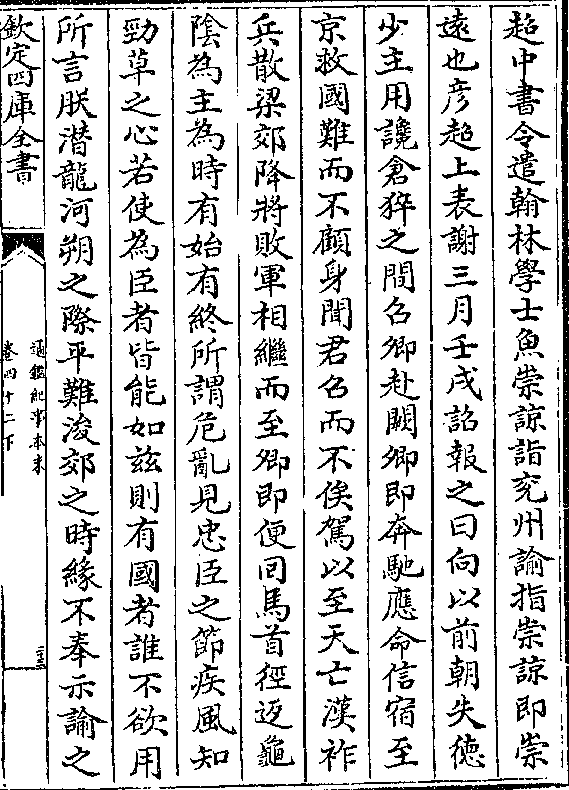 超中書令遣翰林學士魚崇諒詣兖州諭指崇諒即崇
遠也彦超上表謝三月壬戌詔報之曰向以前朝失徳
少主用讒倉猝之間召卿赴闕卿即奔馳應命信宿至
京救國難而不顧身聞君召而不俟駕以至天亡漢祚
兵散梁郊降將敗軍相繼而至卿即便回馬首徑返龜
陰為主為時有始有終所謂危亂見忠臣之節疾風知
勁草之心若使為臣者皆能如兹則有國者誰不欲用
所言朕潛龍河朔之際平難浚郊之時緣不奉示諭之
欽定四庫全書
通鑑紀事本末
卷四十二下
二十三